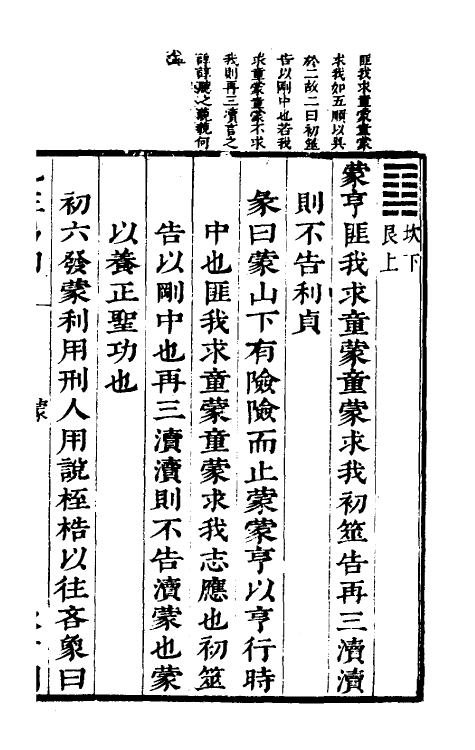 匪我求童蒙童蒙
求我如五順以巽
於二故二曰初筮
告以剛中也若我
求童蒙童蒙不求
我則再三瀆言之
諄諄聽之藐藐何
益
坎下
艮上
蒙亨匪我求童蒙童蒙求我初筮告再三瀆瀆
則不告利貞
彖曰蒙山下有險險而止蒙蒙亨以亨行時
中也匪我求童蒙童蒙求我志應也初筮
告以剛中也再三瀆瀆則不告瀆蒙也蒙
以養正聖功也
初六發蒙利用刑人用說桎梏以往吝象曰
蒙